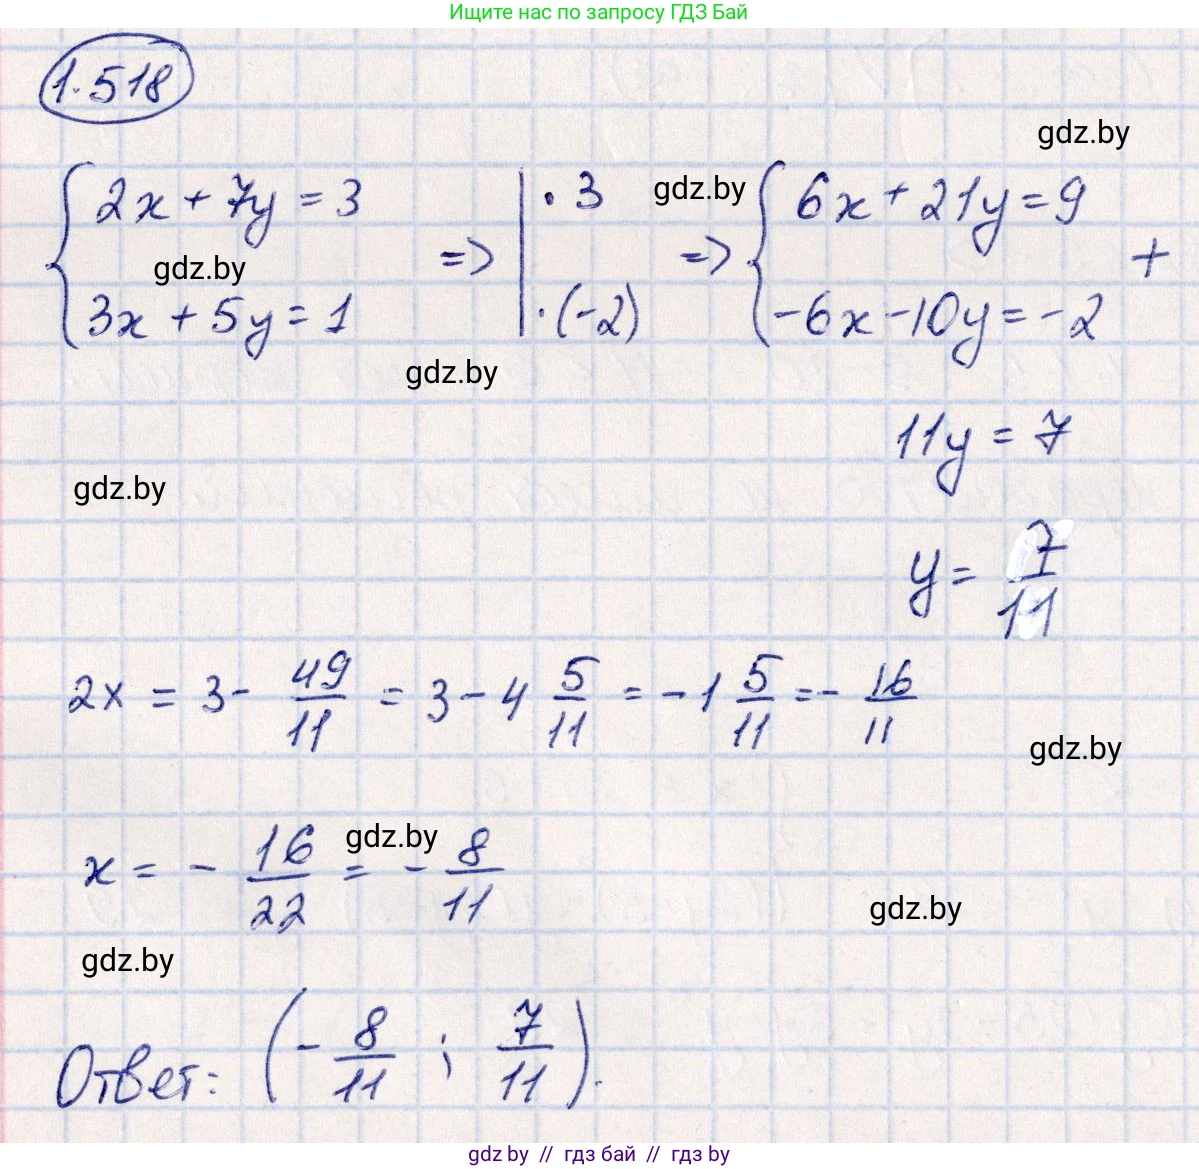 Ищите нас по запросу ГДЗ Бай
1.518
gdz.by
{ 2x + 7y = 3 => | · 3 gdz.by => { 6x + 21y = 9
gdz.by +
3x + 5y = 1 · (-2) -6x - 10y = -2
gdz.by
11y = 7
gdz.by
y = 7/11
2x = 3 - 49/11 = 3 - 4 5/11 = -1 5/11 = - 16/11
gdz.by
x = - 16/22 = - 8/11
gdz.by
gdz.by
gdz.by
Ответ: (- 8/11 ; 7/11).
gdz.by // гдз бай // gdz by